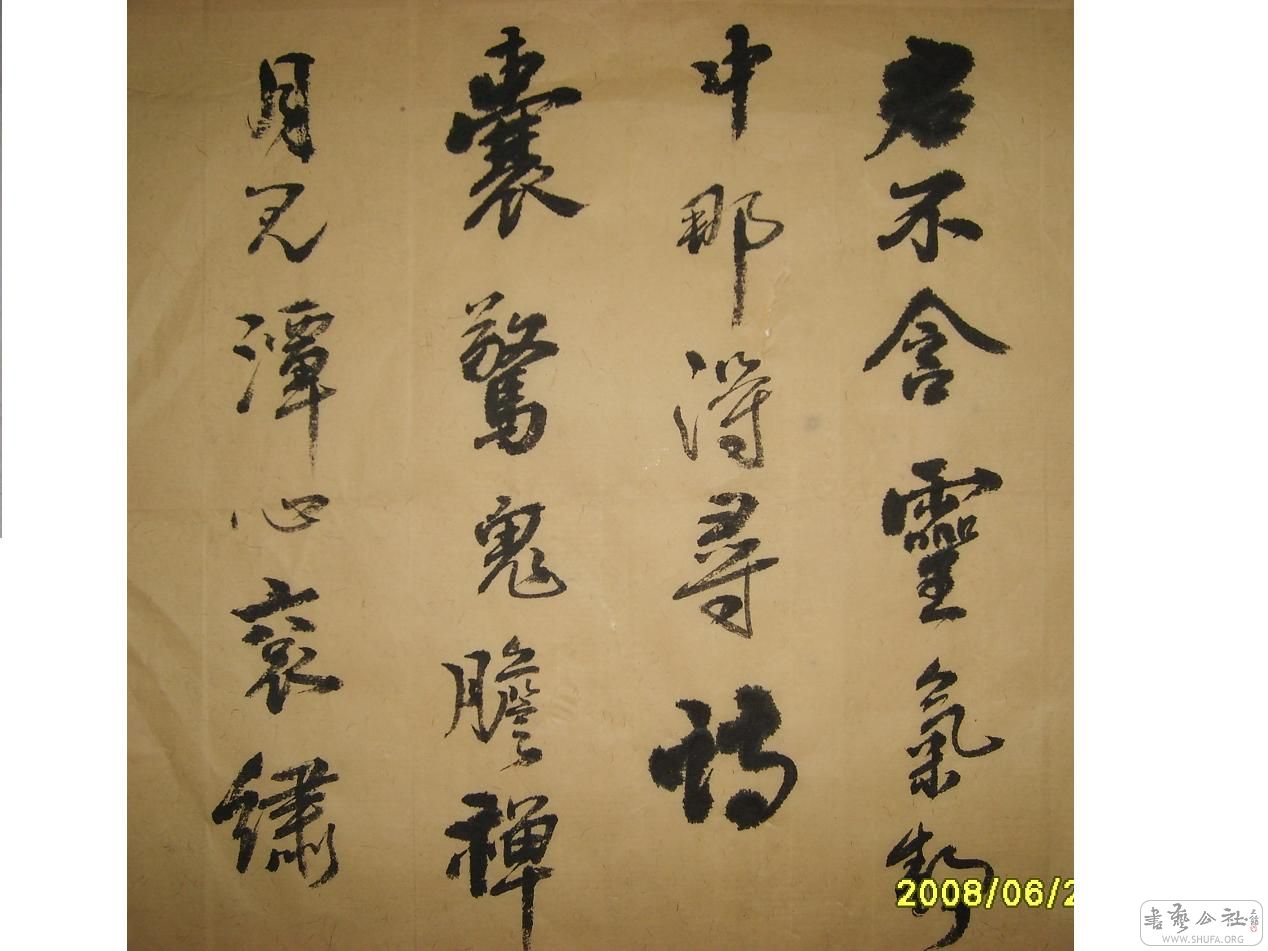 若不含靈氣
中那得尋詩
囊驚鬼膽禪
月見潭心衮繡
2008/06/2
書藝公社
WWW.SHUFA.ORG